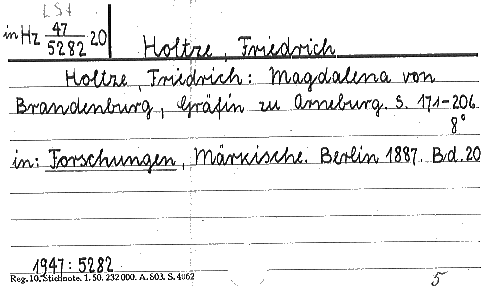 LSt
in Hz 47/5282 20
Holtze, Friedrich
Holtze, Friedrich: Magdalena von
Brandenburg, Gräfin zu Arneburg. S. 171-206
8°
in: Forschungen, Märkische. Berlin 1887. Bd. 20
1947: 5282
Reg. 10. Stichnote. 1. 50. 232000. A. 803. S. 4062
5